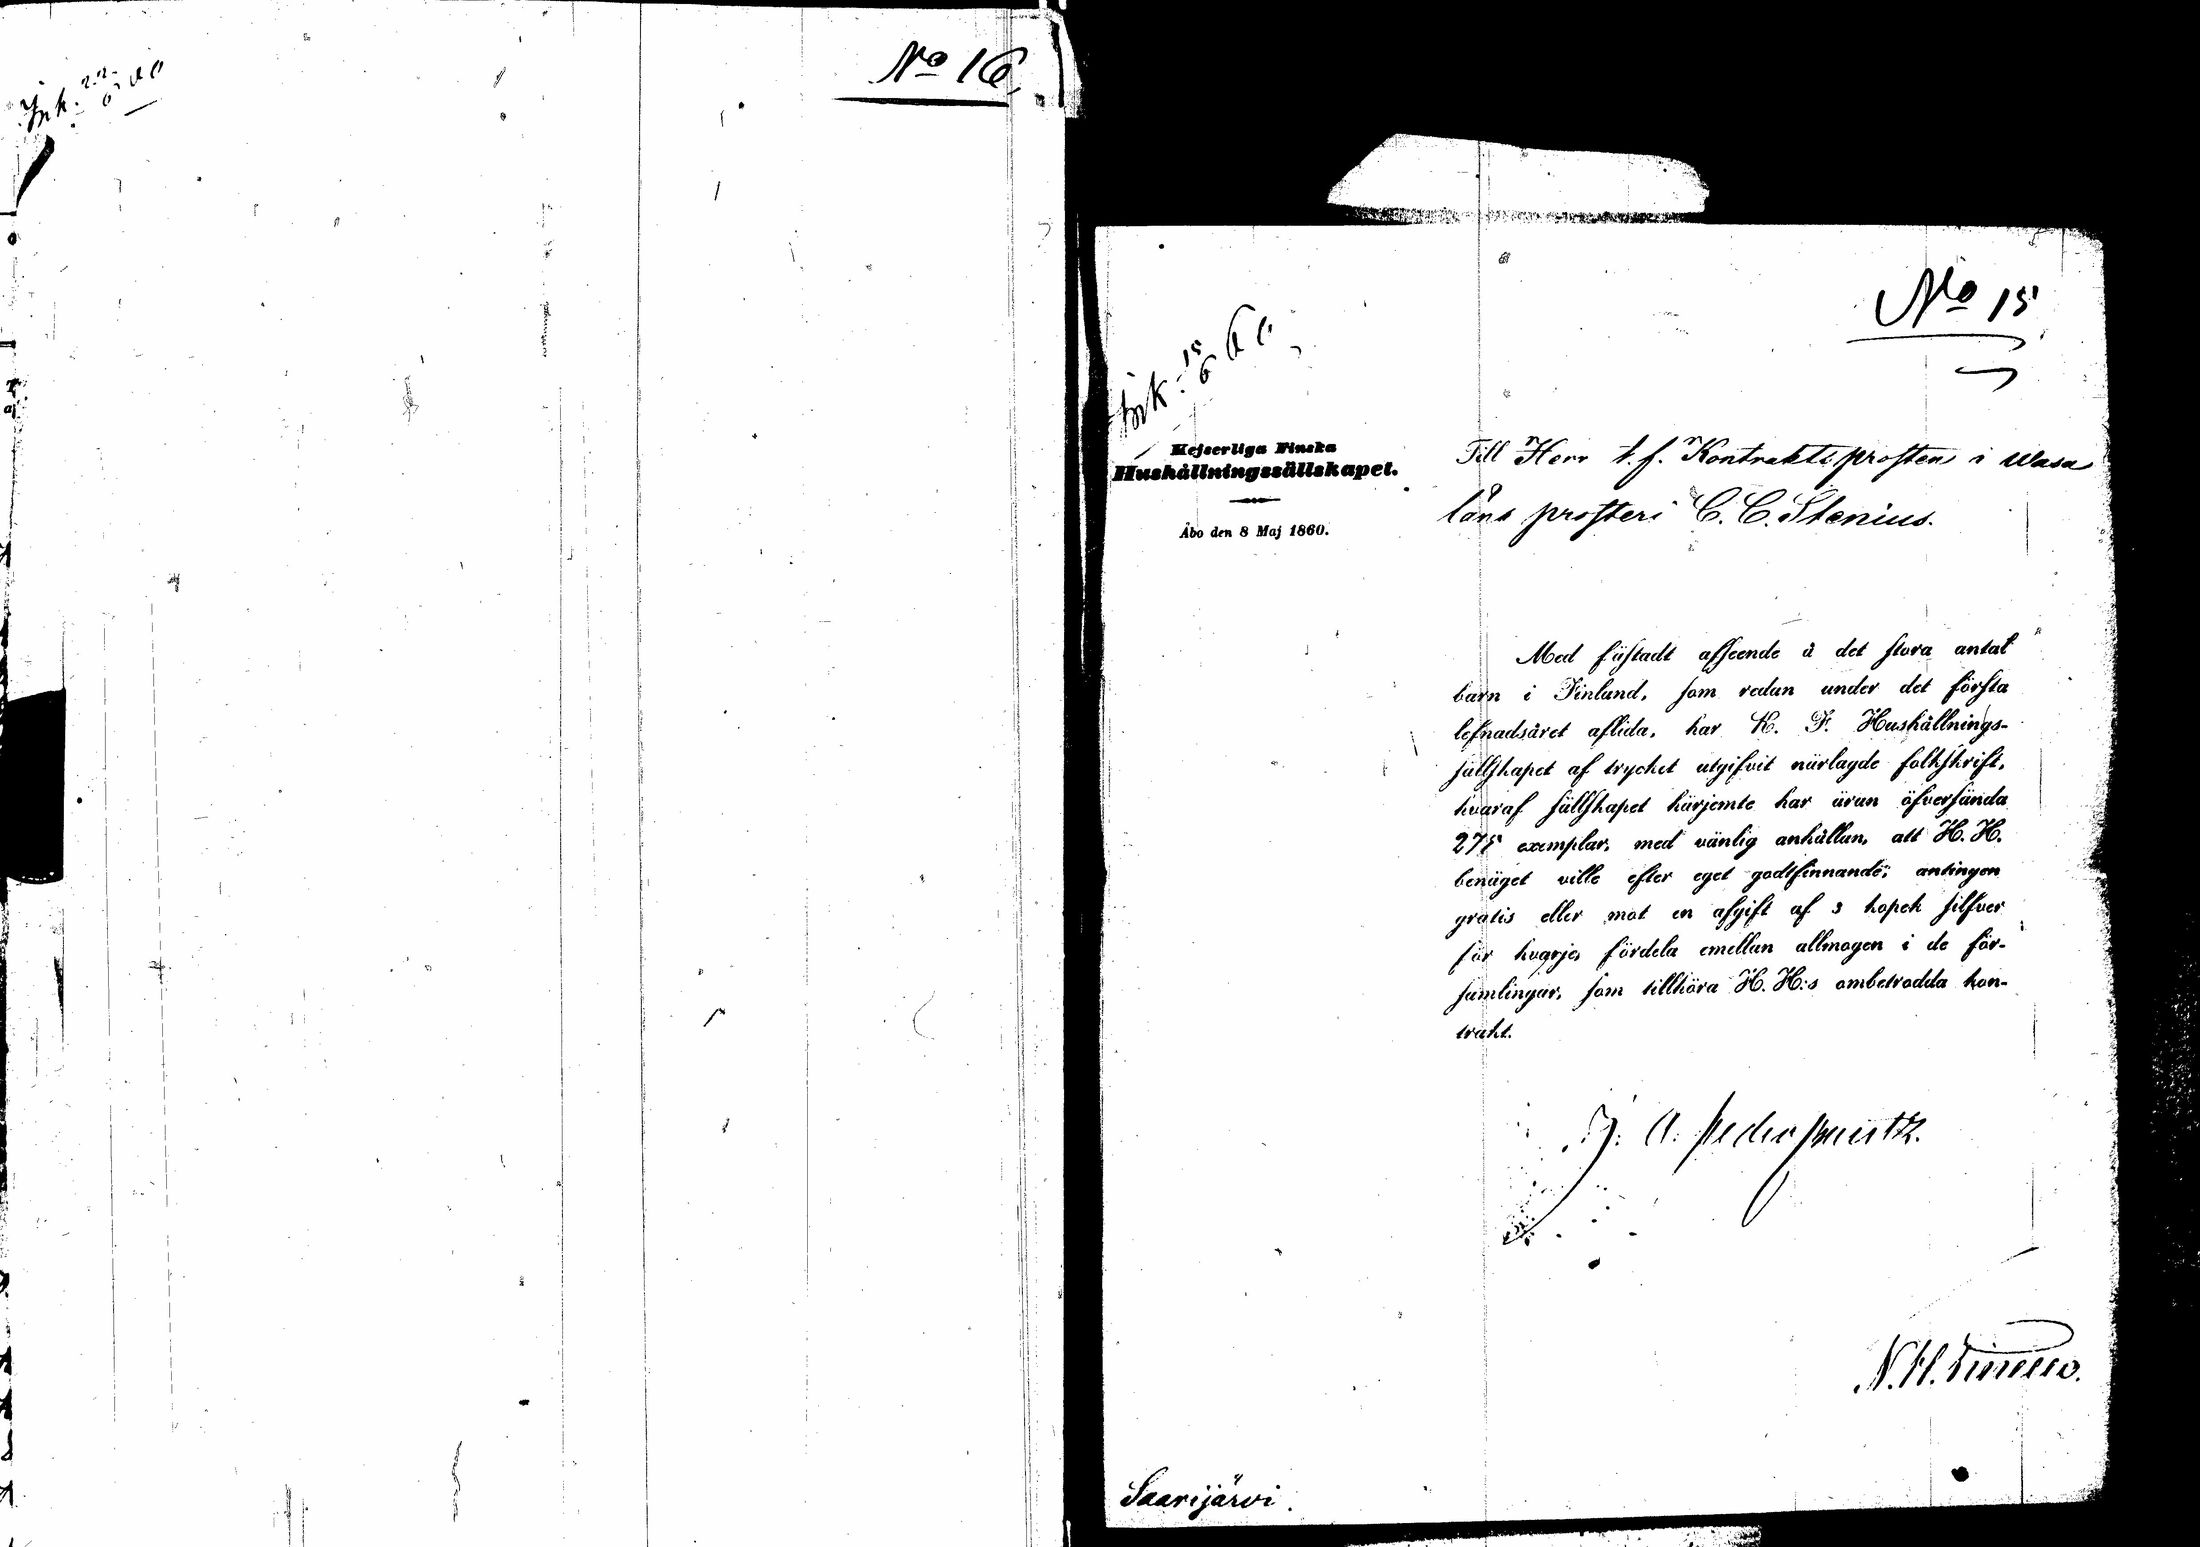 Ink. 22/6 60
No 16.
No 15
Ink. 15/6 60
Kejserliga Finska
Hushållningssällskapet.
Åbo den 8 Maj 1860.
Till Herr t. f. Kontraktsprosten i Wasa
läns prosteri C. C. Stenius.
Med fästadt afseende å det stora antal
barn i Finland, som redan under det första
lefnadsåret aflida, har K. F. Hushållnings-
sällskapet af trycket utgifvit närlagde folkskrift,
hvaraf sällskapet härjemte har äran öfversända
275 exemplar, med vänlig anhållan, att H. H.
benäget ville efter eget godtfinnande, antingen
gratis eller mot en afgift af 3 kopek silfver
för hvarje, fördela emellan allmogen i de för-
samlingar, som tillhöra H. H:s ombetrodda kon-
trakt.
N. H.
Saarijärvi.